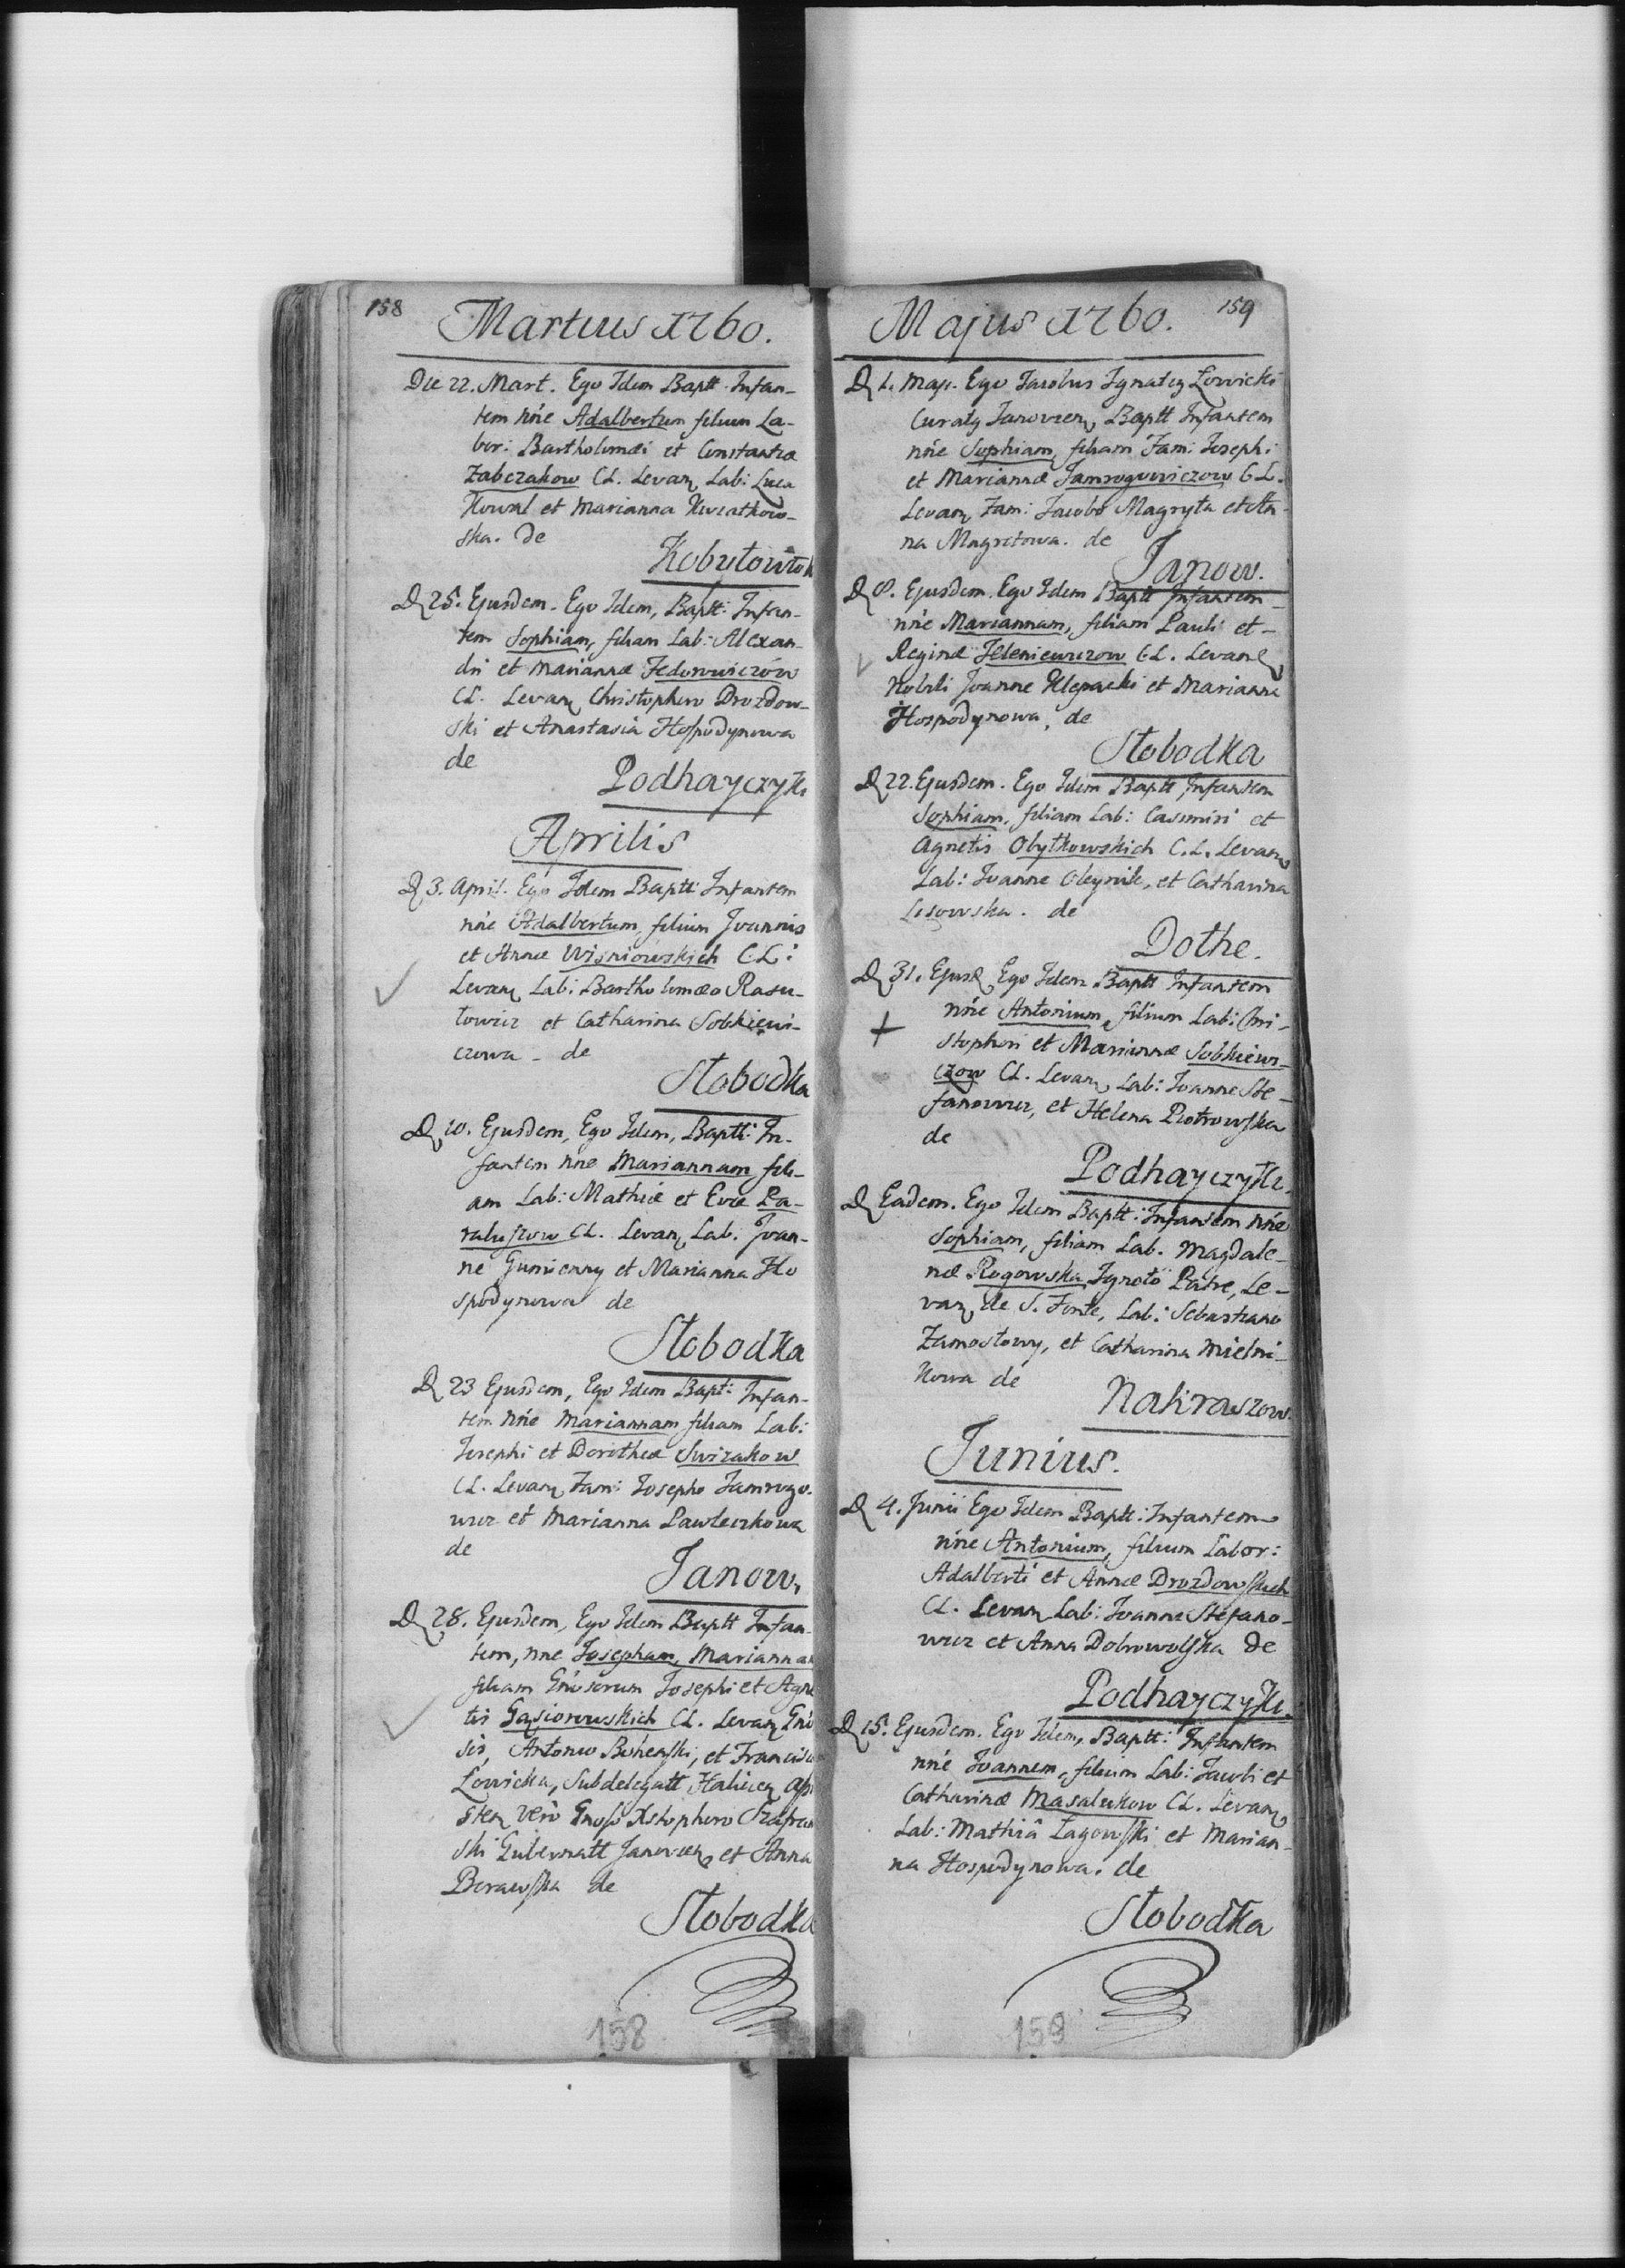 158
Martius 1760.
Die 22. Mart. Ego Idem Baptt Infan-
tem nn͞e Adalbertum filium La-
bor: Bartholomæi et Constantiæ
Zabczakow CL. Levan. Lab: Luca
Kowal et Marianna Kwiatkow-
ska. de
Kobyłowłok
D 25. Ejusdem. Ego Idem, Baptt: Infan-
tem Sophiam, filiam Lab: Alexan-
dri et Mariannæ Fedorowiczów
CL. Levan Christophero Drozdow-
ski et Anastasia Hospodynowa
de
Podhayczyki
Aprilis
D 3. April. Ego Idem Baptt: Infantem
nn͞e Adalbertum, filium Joannis
et Annæ Wisniowskich CL:
Levan Lab: Bartholomæo Rasu-
towicz et Catharina Sobkiewi-
czowa - de
Słobodka
D 10. Ejusdem, Ego Idem, Baptt: In-
fantem nne Mariannam fili-
am Lab: Mathiæ et Evæ Pa-
CL. Levan Lab. Joan-
ne Gumienny et Marianna Ho
spodynowa de
Słobodka
D 23 Ejusdem, Ego Idem Bapt: Infan-
tem nn͞e Mariannam filiam Lab:
Josephi et Dorotheæ Swizakow
CL. Levan Fam: Josepho Jamrogo-
wicz et Marianna Pawleczkowa
de
Janow.
D 28. Ejusdem, Ego Idem Baptt Infan-
tem, nne Josepham, Mariannam
filiam Gn͞osorum Josephi et Agne
tis Gąsiorowskich CL. Levan Gn͞o
sis, Antonio Boheński, et Francisca
Łowicka, Subdelegatt Halicen Assi
sten vero Gnoso Xstophoro
ski Gubernatt Janovien et Anna
Borawska de
Słobodka
158
Majus 1760.
159
D 1. Maji. Ego Jacobus Ignaty Łowicki
Curaty Janovien, Baptt Infantem
nn͞e Sophiam, filiam Fam: Josephi
et Mariannæ Jamrogowiczow CL.
Levan Fam: Jacobo Magryta et An-
na Magretowa. de
Janow.
D 8. Ejusdem. Ego Idem Baptt Infantem
nn͞e Mariannam, filiam Pauli et
Reginæ Jeleniewiczow CL. Levan
Nobili Joanne Klepacki et Marianna
Hospodynowa, de
Słobodka
D 22. Ejusdem. Ego Idem Baptt Infantem
Sophiam, filiam Lab: Casimiri et
Agnetis Obytkowskich C.L. Levan
Lab: Joanne Oleynik, et Catharina
Lisowska. de
Dołhe.
D 31. Ejusd Ego Idem Baptt Infantem
nn͞e Antonium, filium Lab: Chri-
stophori et Mariannæ Sobkiewi-
czow CL. Levan Lab: Joanne Ste-
fanowicz, et Helena Piotrowska
de
Podhayczyki.
D Eadem. Ego Idem Baptt: Infantem nn͞e
Sophiam, filiam Lab. Magdale-
næ Rogowska Ignoto Patre, Le-
van de S. Fonte, Lab: Sebastiano
Zamostowy, et Catharina Mielni-
kowa de
Nakwaszow.
Junius.
D 4. Junii Ego Idem Baptt: Infantem
nn͞e Antonium, filium Labor:
Adalberti et Annæ Drozdowskich
CL. Levan Lab: Joanne Stefano-
wicz et Anna Dobrowolska de
Podhayczyki.
D 15. Ejusdem. Ego Idem, Baptt: Infantem
nn͞e Joannem, filium Lab: Jacobi et
Catharinæ Masalukow CL. Levan
Lab: Mathiâ Łagowski et Marian-
na Hospodynowa. de
Słobodka
159